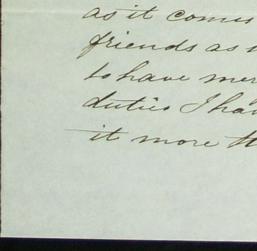 as it comes
friends as
to have mer
duties I hav
it more th